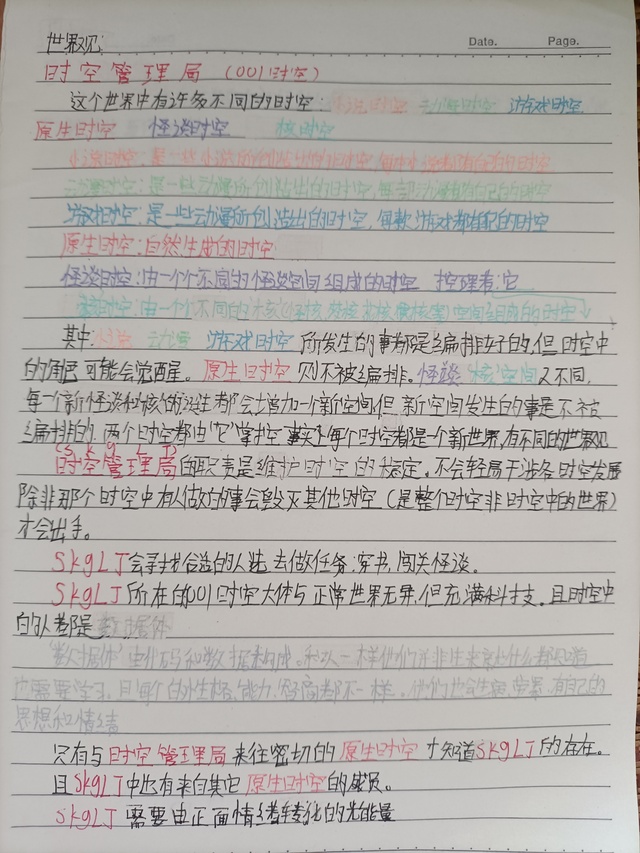 世界观:
Date. Page.
时空管理局 (001时空)
这个世界中有许多不同的时空: 小说时空 动漫时空 游戏时空
原生时空 怪谈时空 核时空
小说时空: 是一些小说所创造出的时空, 每本小说都有自己的时空
动漫时空: 是一些动漫所创造出的时空, 每部动漫都有自己的时空
游戏时空: 是一些动漫所创造出的时空, 每款游戏都有自己的时空
原生时空: 自然生成的时空
怪谈时空: 由一个个不同的怪谈空间组成的时空 控理者: 它
核时空: 由一个个不同的核(怪核 梦核 等)空间组成的时空
其中: 小说 动漫 游戏时空 所发生的事都是编排好的, 但时空中
的角色可能会觉醒。原生时空则不被编排。怪谈 "核"空间又不同,
每一个新怪谈和核的诞生都会增加一个新空间, 但新空间发生的事是不被
编排的. 两个时空都由"它"掌控. 事实上每个时空都是一个新世界, 有不同的世界观
S k g L J
时空管理局的职责是维护时空的稳定, 不会轻易干涉各时空发展
除非那个时空中有人做的事会毁灭其他时空 (是整个时空非时空中的世界)
才会出手。
SkgLJ会寻找合适的人选, 去做任务: 穿书, 闯关怪谈。
SkgLJ所在的001时空大体与正常世界无异, 但充满科技. 且时空中
的人都是数据体
"数据体"由代码和数据构成。和人一样他们并非生来就什么都知道
也需要学习, 且每个的性格, 能力, 都不一样。他们也会生病, 有自己的
思想和情绪
只有与时空管理局来往密切的原生时空才知道SkgLJ的存在。
且SkgLJ中也有来自其它原生时空的成员。
SkgLJ需要由正面情绪转化的光能量